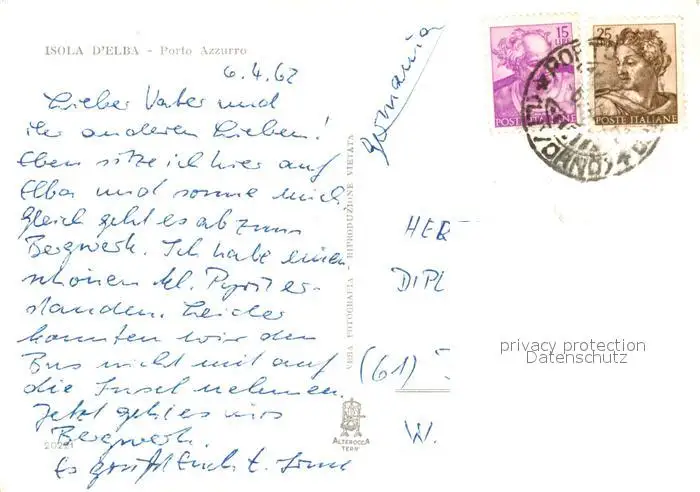 ISOLA D'ELBA - Porto Azzurro
6.4.62
Lieber Vater und
ihr anderen Lieben!
Eben sitze ich hier auf
Elba und sonne mich,
gleich geht es ab zum
Bergwerk. Ich habe einen
schönen kl. Pyrit er-
standen. Leider
konnten wir den
Bus nicht mit auf
die Insel nehmen.
Jetzt geht es ins
Bergwerk.
Es grüßt Euch
20221
VERA FOTOGRAFIA - RIPRODUZIONE VIETATA
ALTEROCCA
TERNI
Germania
15
LIRE
POSTE ITALIANE
25
POSTE ITALIANE
PORTO
(LIVORNO)
HER
DIPL
(61)
W.
privacy protection
Datenschutz